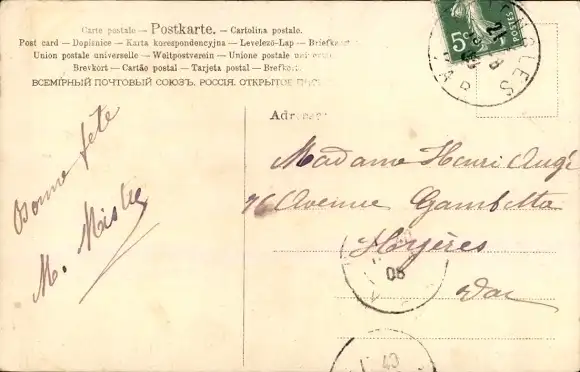 Carte postale — Postkarte. — Cartolina postale.
Post card — Dopisnice — Karta korespondencyjna — Levelező-Lap — Briefkaart
Union postale universelle — Weltpostverein — Unione postale
Brevkort — Cartão postal — Tarjeta postal — Brefkort.
ВСЕМІРНЫЙ ПОЧТОВЫЙ СОЮЗЪ. РОССІЯ. ОТКРЫТОЕ
5
POSTES
Bonne fête
M.
Madame Henri Augé
76 Avenue Gambetta
Hyères
Var
08